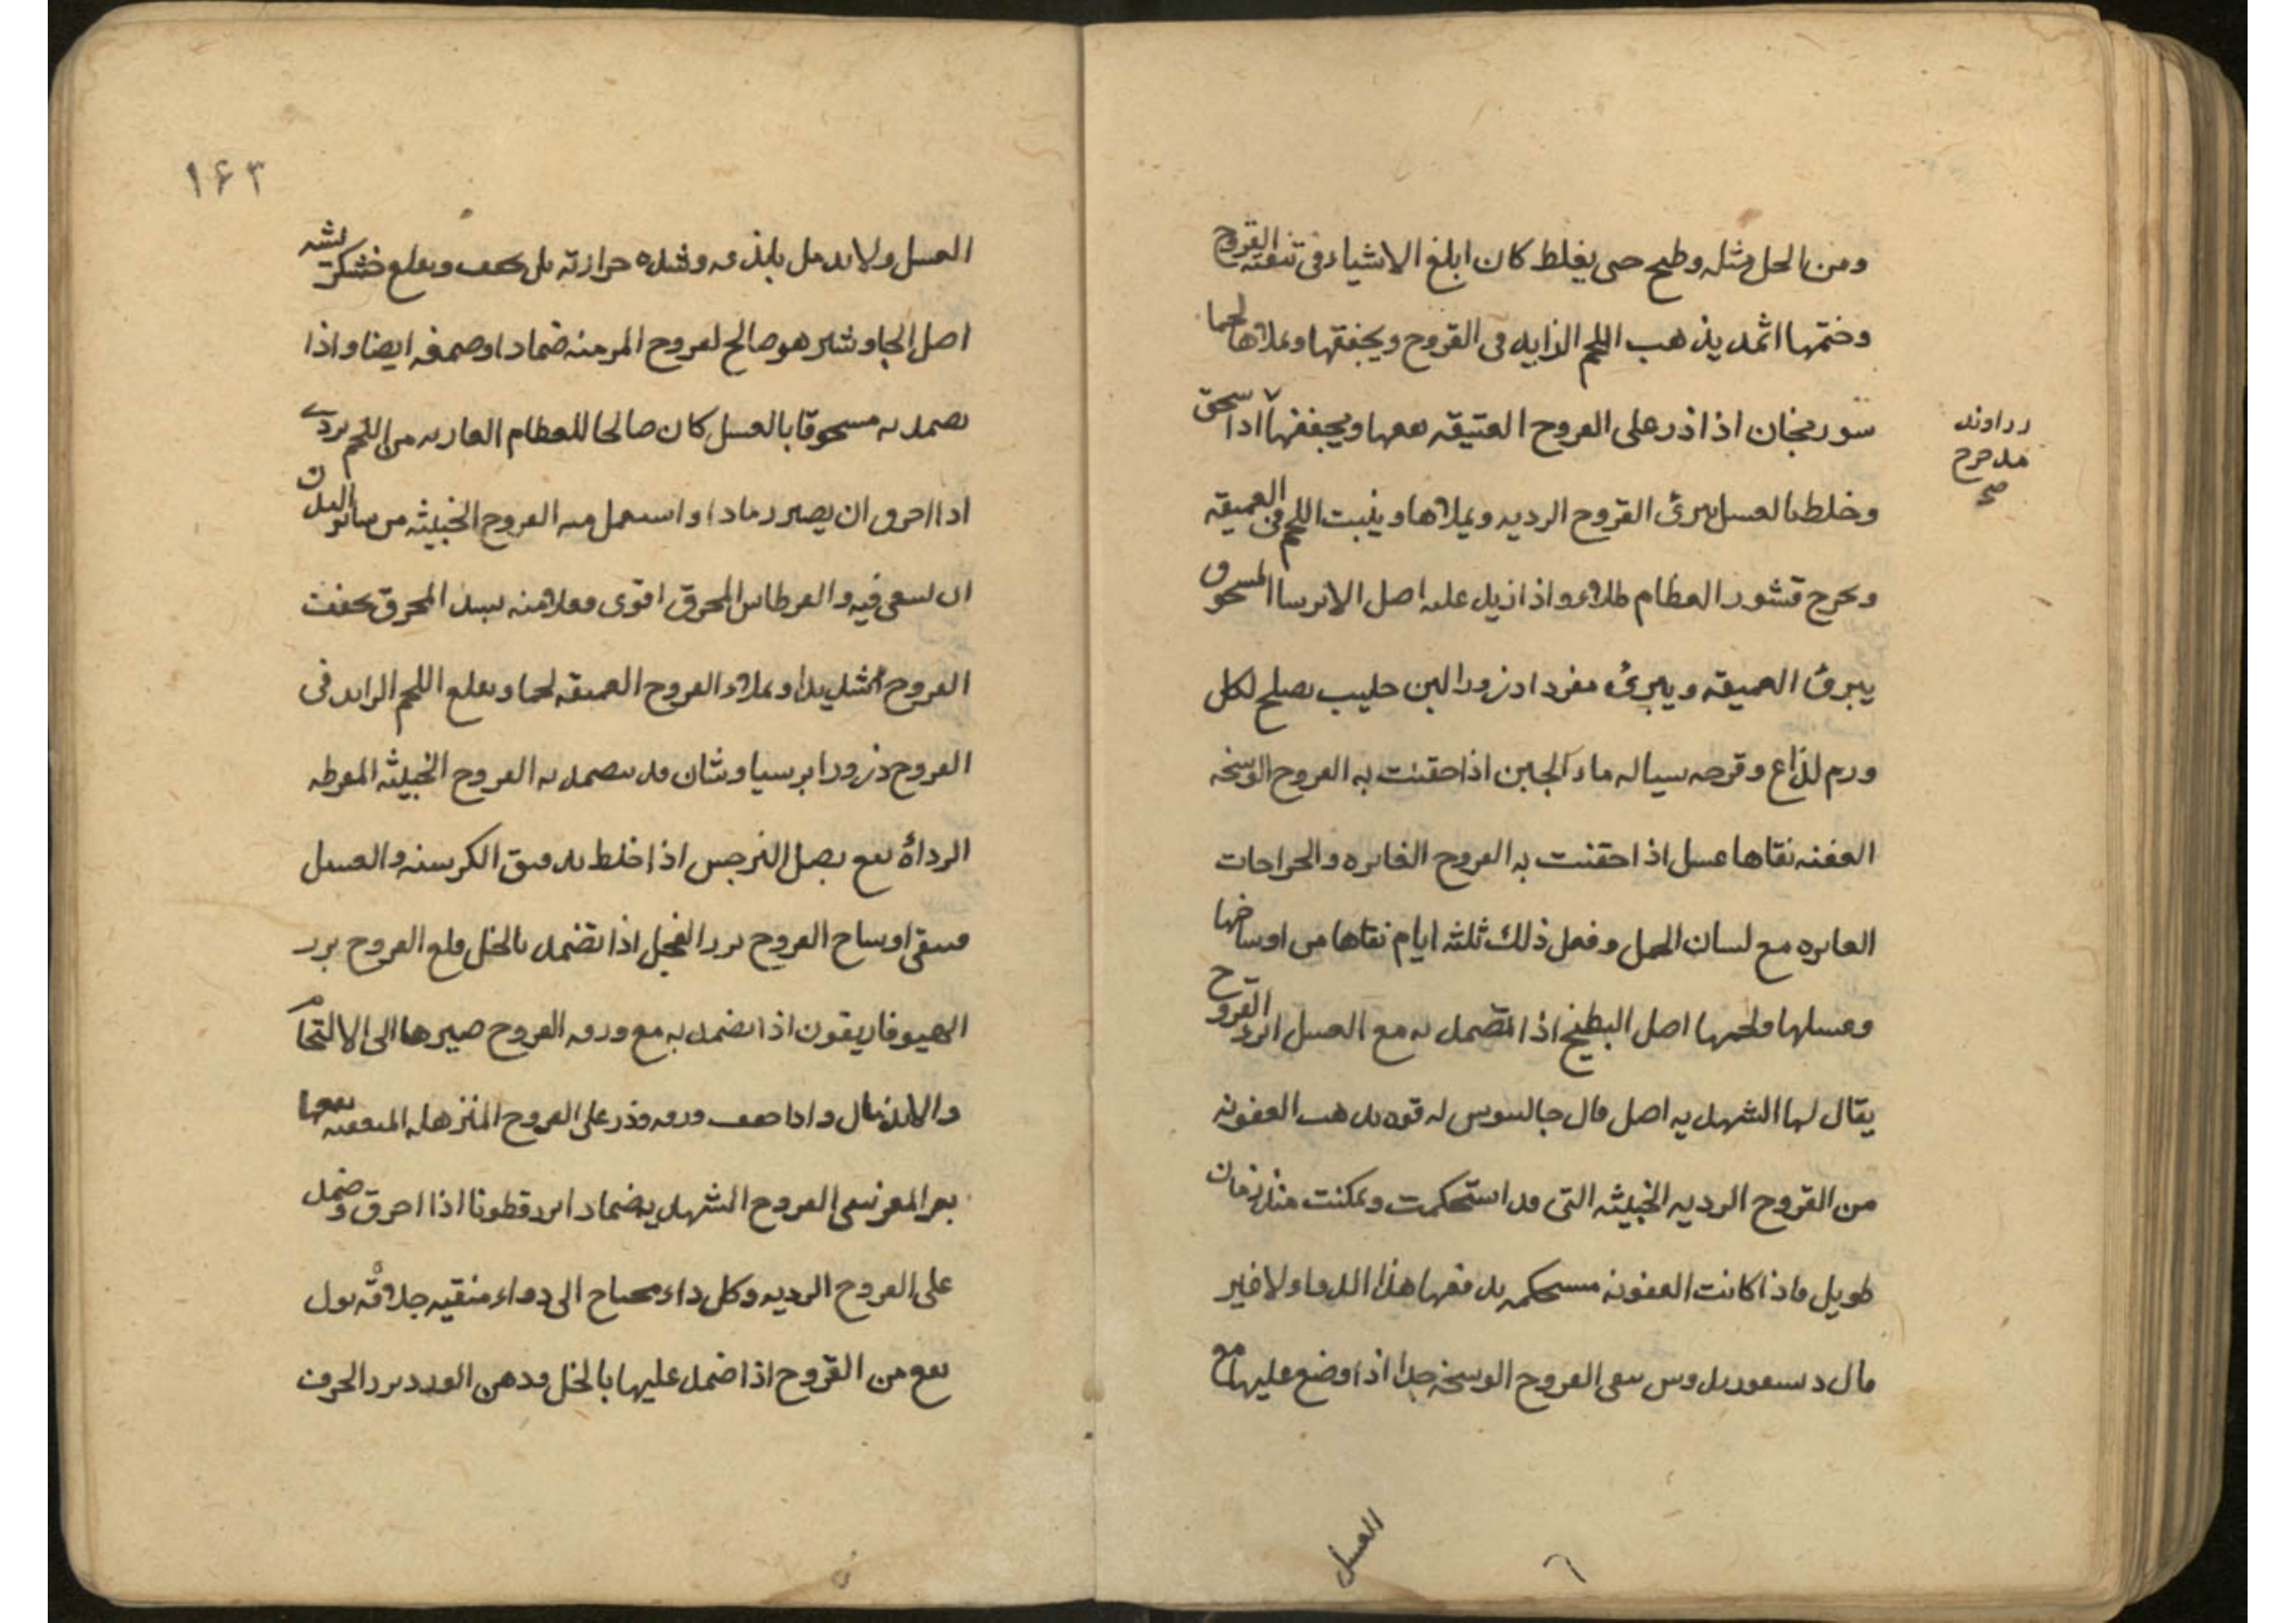 ومن الخل مثله وطبخ حتى يغلظ كان ابلغ الاشياء فى تنقية القروح
وختمها اثمد يذهب اللحم الزايد فى القروح ويجففها ويملاها لحما
سورنجان اذا ذر على القروح العتيقه نفعها ويجففها اذا سحق
زراوند
مدحرج
صح
وخلط بالعسل يبرئ القروح الرديه ويملاها وينبت اللحم فى العميقه
ويخرج قشور العظام طلاء واذا زيد عليه اصل الايرسا المسحوق
يبرئ العميقه ويبرئ مفردا ذرورا لبن حليب يصلح لكل
ورم لذاع وقرحه سياله ماء الجبن اذا حقنت به القروح الوسخه
العفنه نقاها عسل اذا حقنت به القروح الغايره والجراحات
الغايره مع لسان الحمل وفعل ذلك ثلثه ايام نقاها من اوساخها
وغسلها ولحمها اصل البطيخ اذا تضمد به مع العسل ابرا القروح
يقال لها الشهديه اصل قال جالينوس له قوه يذهب العفونه
من القروح الرديه الخبيثه التى قد استحكمت وتمكنت منذ زمان
طويل واذا كانت العفونه مستحكمه يدفعها هذا الدواء ولا غير
قال ديسقوريدوس ينقى القروح الوسخه جدا اذا وضع عليها مع
العسل
١٦٣
العسل ولا يدمل بلذعه وشده حرارته بل يجفف ويقلع خشكريشه
اصل الجاوشير هو صالح لقروح المزمنه ضمادا وصمغه ايضا واذا
تضمد به مسحوقا بالعسل كان صالحا للعظام العاريه من اللحم بردى
اذا احرق ان يصير رمادا واستعمل منه القروح الخبيثه من ساير البدن
ان تسعى فيه والقرطاس المحرق اقوى فعلا منه المحرق يجفف
القروح شديدا ويملا القروح العميقه لحما ويقلع اللحم الزايد فى
القروح ذرورا برسياوشان قد يتضمد به القروح الخبيثه المفرطه
الرداءة نفع بصل النرجس اذا خلط بدقيق الكرسنه والعسل
فينقى اوساخ القروح بزر الفجل اذا تضمد بالخل قلع القروح بزر
الهيوفاريقون اذا تضمد به مع ورقه القروح صيرها الى الالتحام
والاندمال واذا جفف ورقه وذر على القروح المترهله المتعفنه نفعها
بعر المعز ينقى القروح الشهديه ضمادا بزر قطونا اذا احرق وضمد
على القروح الرديه وكل داء محتاج الى دواء منقيه جلاءة بول
نفع من القروح اذا ضمد عليها بالخل ودهن الورد بزر الحرف